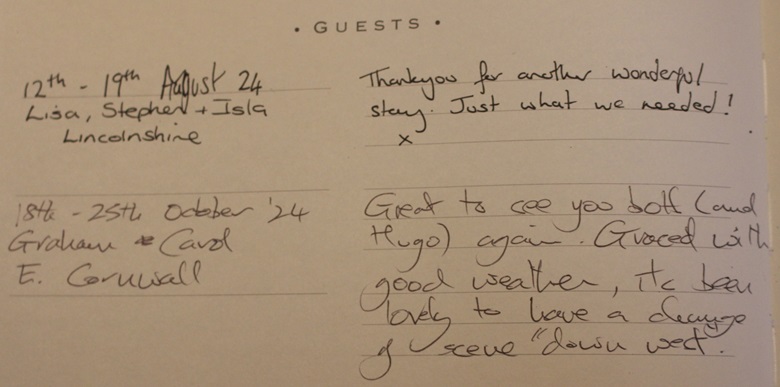 • GUESTS •
12th - 19th August 24
Lisa, Stephen + Isla
Lincolnshire
Thankyou for another wonderful
stay. Just what we needed!
x
18th - 25th October '24
Graham & Carol
E. Cornwall
Great to see you both (and
Hugo) again. Graced with
good weather, its been
lovely to have a change
of scene "down west".